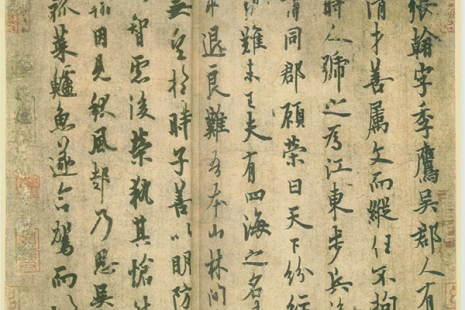 張翰字季鷹吳郡人有
清才善屬文而縱任不拘
時人號之為江東步兵後
謂同郡顧榮曰天下紛紜
難未已夫有四海之名
求退良難吾本山林間
無望於時子善以明防
智慮後榮執其愴然
翰因見秋風起乃思吳
菰菜鱸魚遂命駕而歸